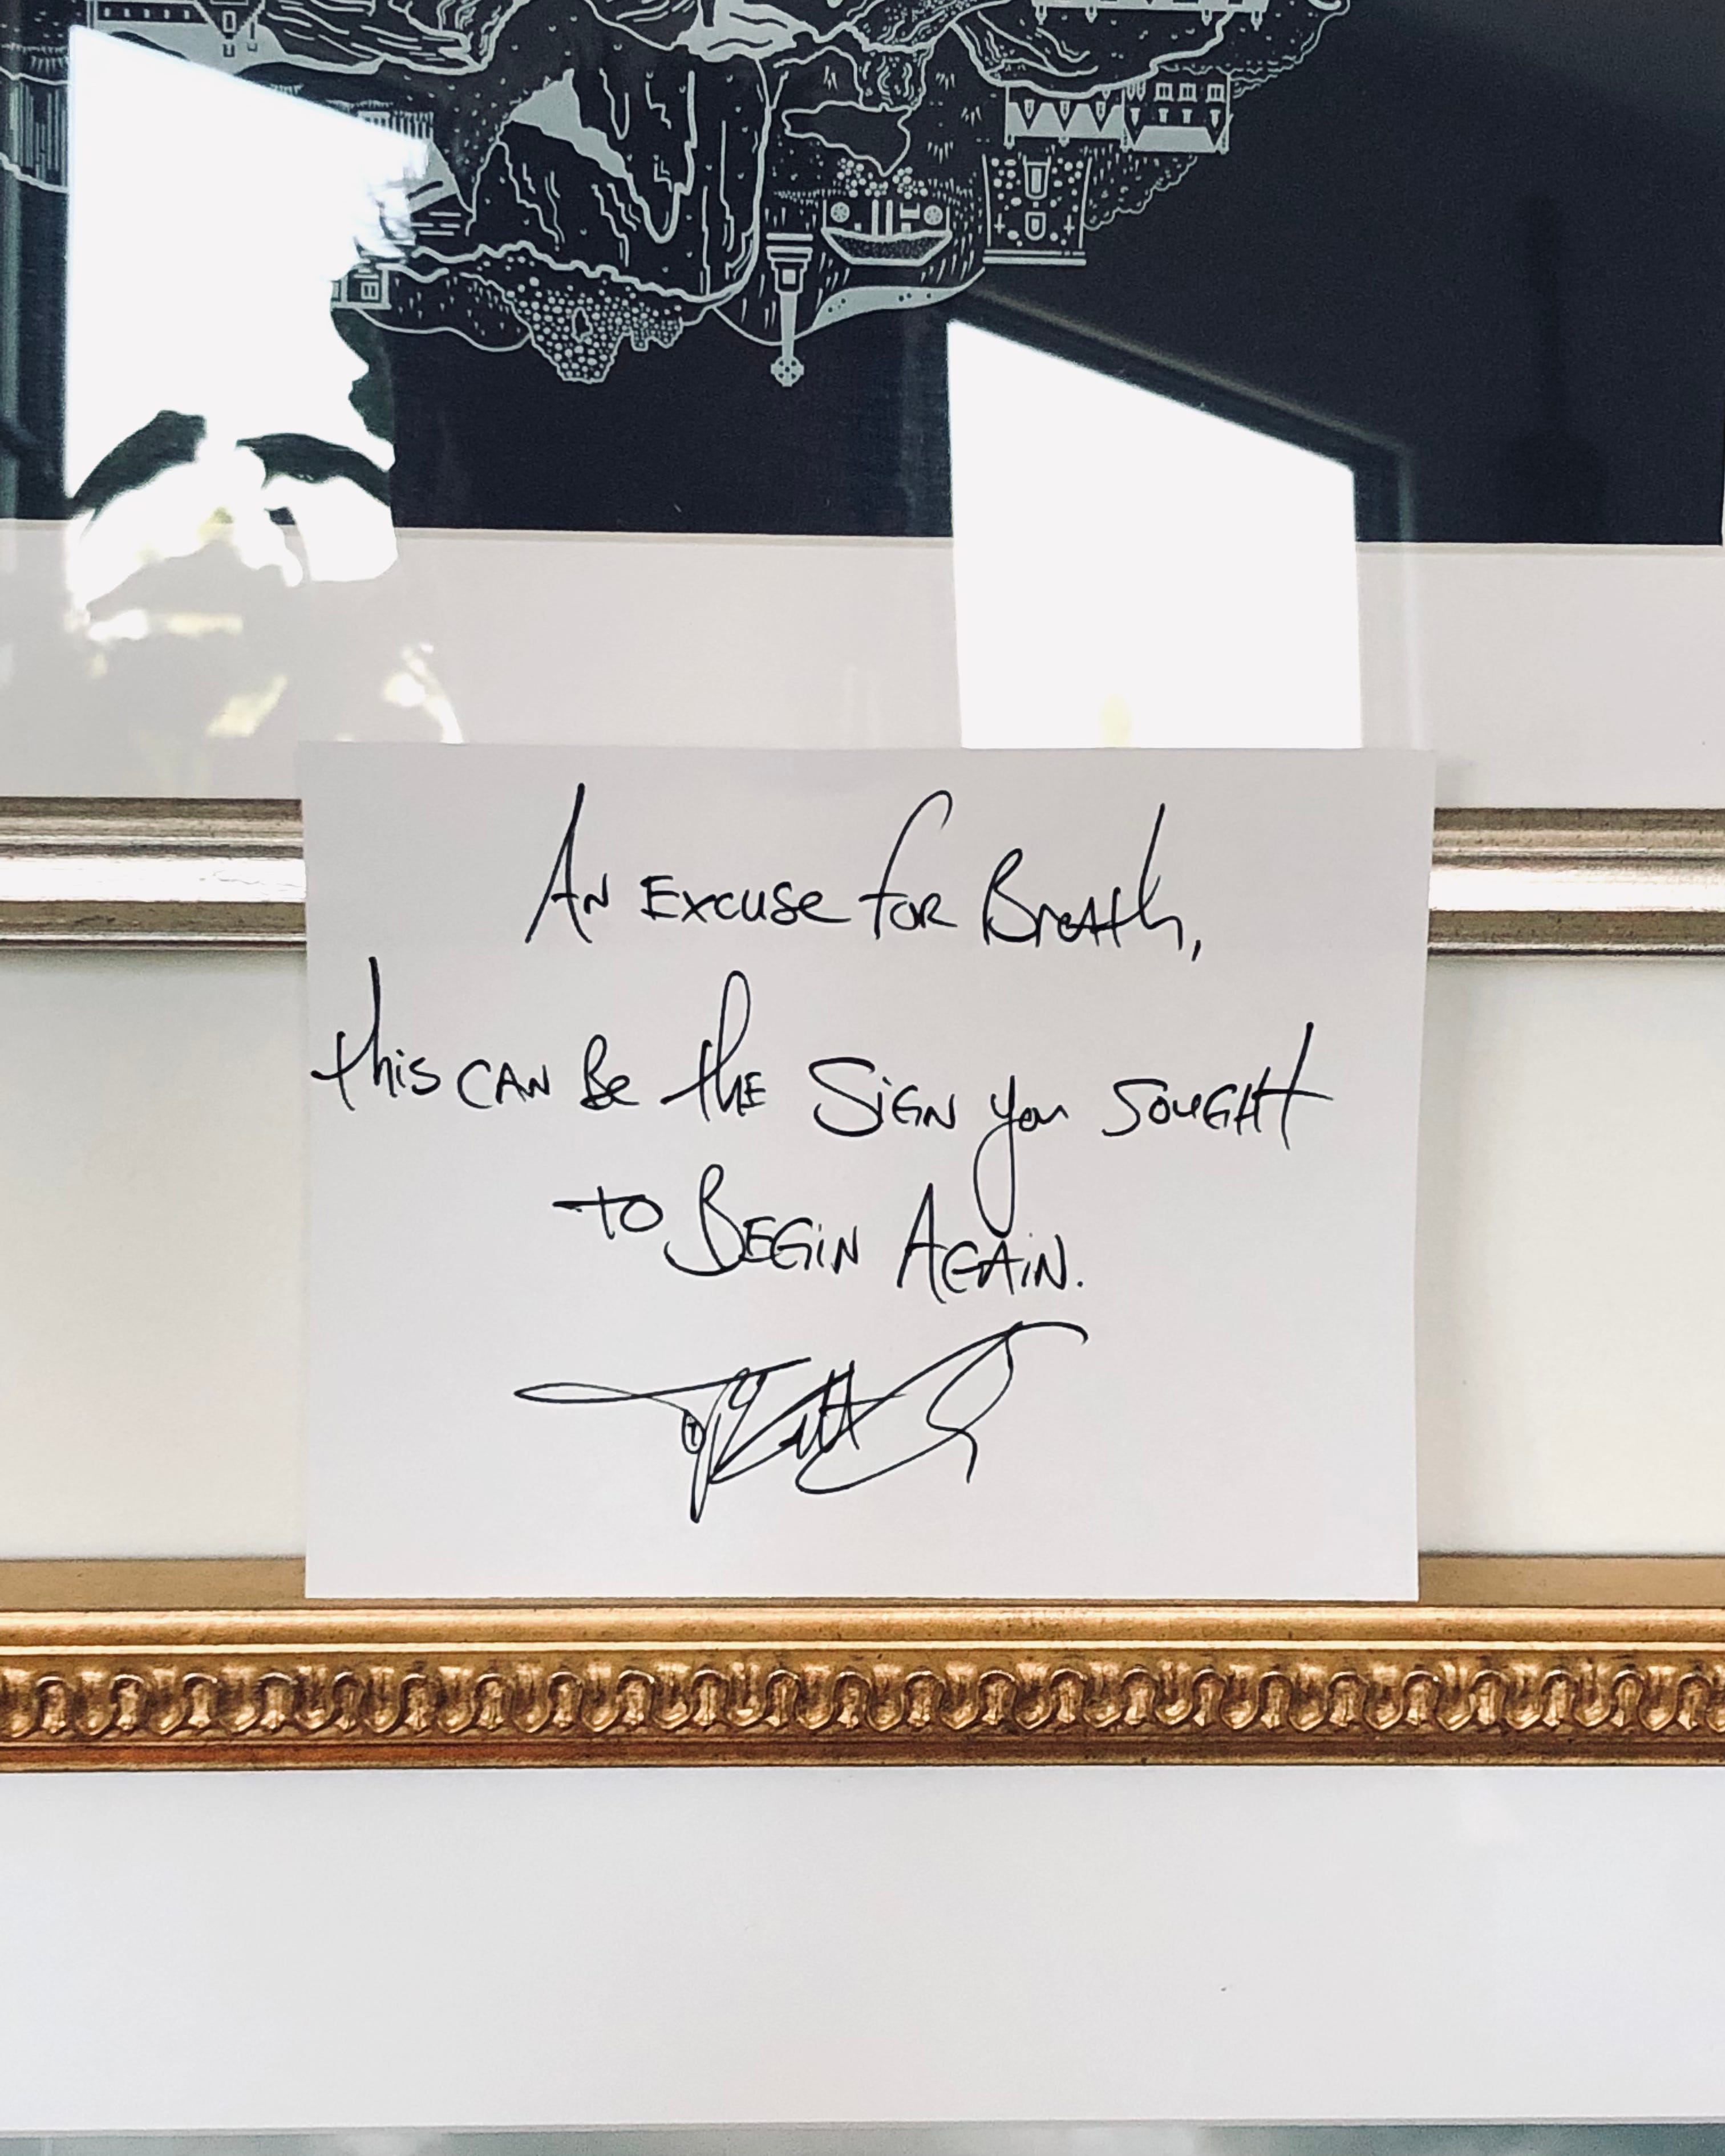 An Excuse for Breath,
this can Be the Sign you sought
to Begin Again.